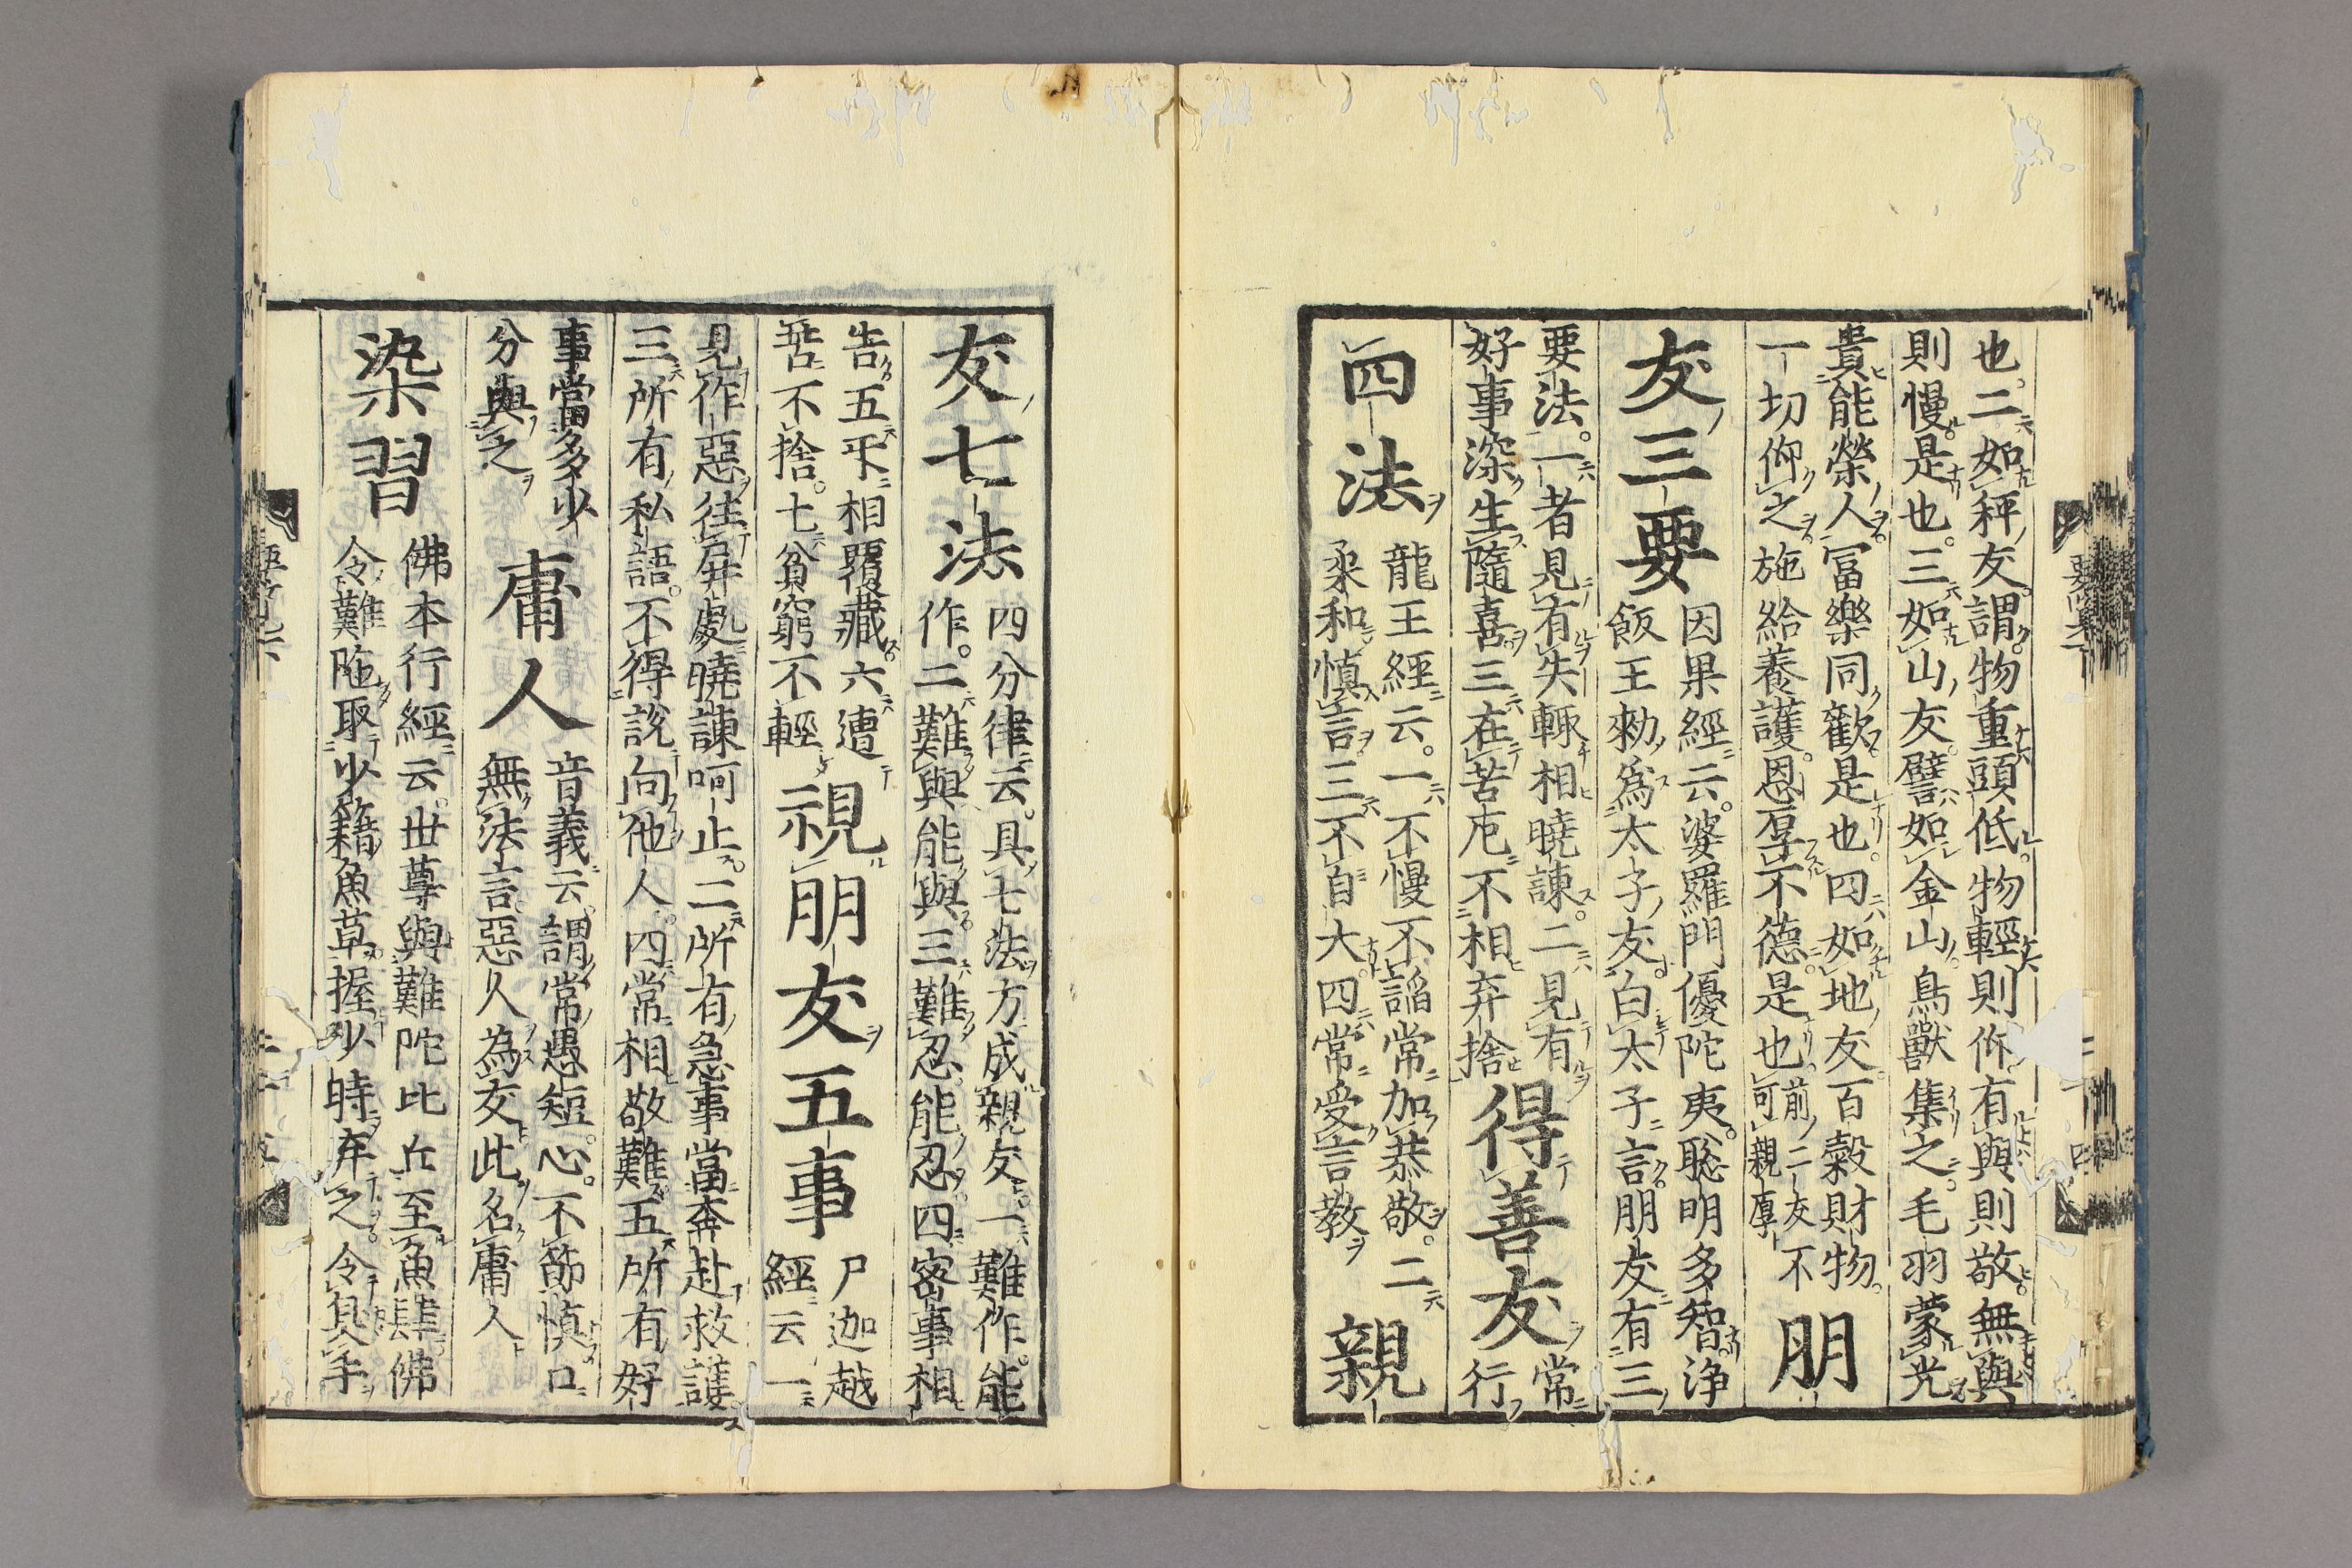 也。二如秤友。謂物重頭低。物輕則仰。有與則敬。無與
則慢。是也。三如山友。譬如金山。鳥獸集之。毛羽蒙光
貴能榮人。冨樂同歡是也。四如地友。百穀財物。
一切仰之。施給養護。恩厚不德。是也。前二友不
可親厚
朋
友三要
因果經云。婆羅門優陀夷。聡明多智。浄
飯王勑爲太子友。白太子言。朋友有三
要法。一者見有失輙相曉諫。二見有
好事深生隨喜三在苦厄不相弃捨
得善友
常
行
四法
龍王經云。一不慢不謟常加恭敬。二
柔和慎言三不自大四常受言教
親
友七法
四分律云。具七法方成親友一難作。能
作。二難與能與三難忍。能忍四宻事相
告五互相覆藏六遭
苦不捨。七貧窮不輕
親朋友五事
尸迦越
經云一
見作惡往屏處曉諫呵止。二所有急事當奔赴救護
三所有私語。不得說向他人。四常相敬難五所有好
事當多少
分與之
庸人
音義云。謂常愚短。心。不節慎口
無法言惡人為友此名庸人
染習
佛本行經云。世尊與難陀比丘至魚肆佛
令難陁取少籍魚草握少時弃之。令臭手